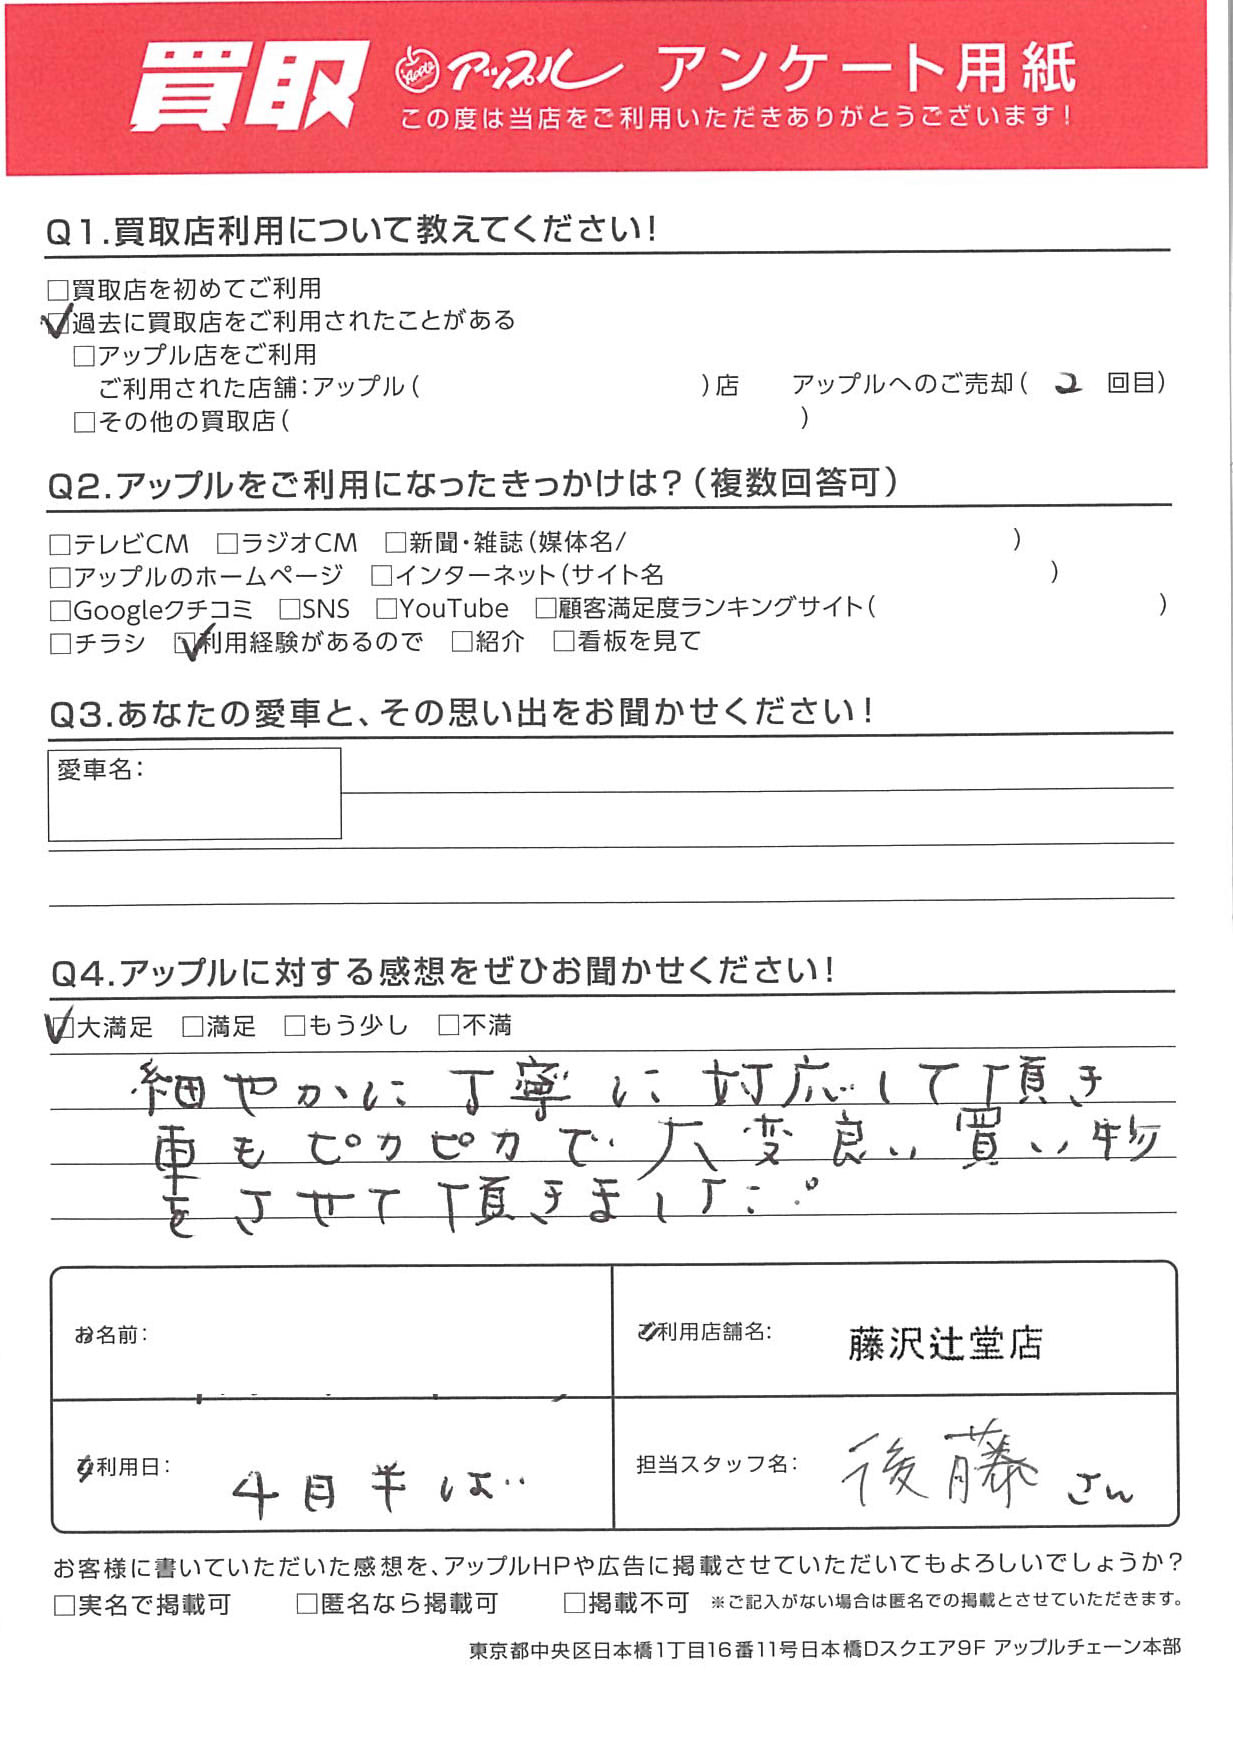 買取 Apple アップル アンケート用紙
この度は当店をご利用いただきありがとうございます!
Q1.買取店利用について教えてください!
□買取店を初めてご利用
☑過去に買取店をご利用されたことがある
□アップル店をご利用
ご利用された店舗:アップル( )店 アップルへのご売却( 2 回目)
□その他の買取店( )
Q2.アップルをご利用になったきっかけは?(複数回答可)
□テレビCM □ラジオCM □新聞・雑誌(媒体名/ )
□アップルのホームページ □インターネット(サイト名 )
□Googleクチコミ □SNS □YouTube □顧客満足度ランキングサイト( )
□チラシ ☑利用経験があるので □紹介 □看板を見て
Q3.あなたの愛車と、その思い出をお聞かせください!
愛車名:
Q4.アップルに対する感想をぜひお聞かせください!
☑大満足 □満足 □もう少し □不満
細やかに丁寧に対応して頂き
車もピカピカで大変良い買い物
をさせて頂きました。
お名前:
ご利用店舗名: 藤沢辻堂店
ご利用日: 4月半ば
担当スタッフ名: 後藤さん
お客様に書いていただいた感想を、アップルHPや広告に掲載させていただいてもよろしいでしょうか?
□実名で掲載可 □匿名なら掲載可 □掲載不可 ※ご記入がない場合は匿名での掲載とさせていただきます。
東京都中央区日本橋1丁目16番11号日本橋Dスクエア9F アップルチェーン本部